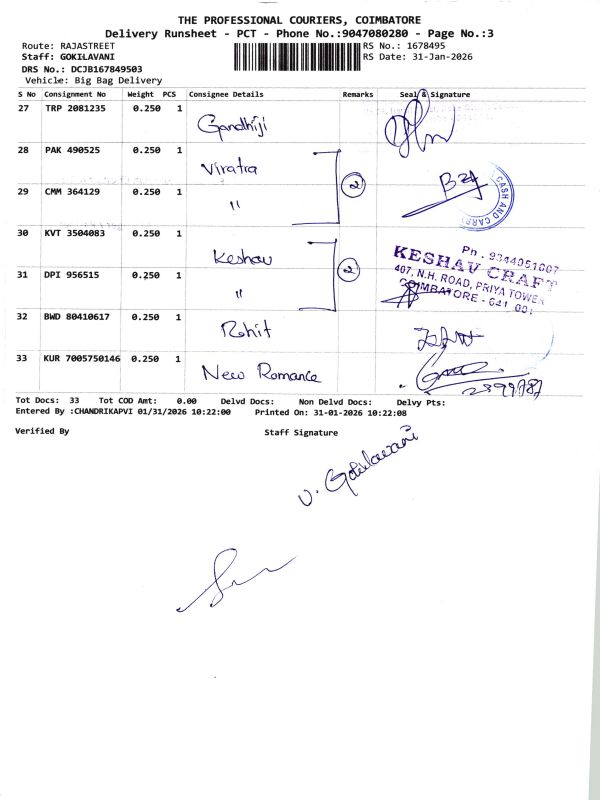 THE PROFESSIONAL COURIERS, COIMBATORE
Delivery Runsheet - PCT - Phone No.:9047080280 - Page No.:3
Route: RAJASTREET
RS No.: 1678495
Staff: GOKILAVANI
RS Date: 31-Jan-2026
DRS No.: DCJB167849503
Vehicle: Big Bag Delivery
S No Consignment No Weight PCS Consignee Details Remarks Seal & Signature
27 TRP 2081235 0.250 1 Gandhiji
28 PAK 490525 0.250 1 Viratra
2
29 CMM 364129 0.250 1 "
CASH AND CARRY
30 KVT 3504083 0.250 1 Keshav
2
Ph. 9344051007
KESHAV CRAFT
407, N.H. ROAD, PRIYA TOWER
COIMBATORE - 641 001
31 DPI 956515 0.250 1 "
32 BWD 80410617 0.250 1 Rohit
33 KUR 7005750146 0.250 1 New Romance
Tot Docs: 33 Tot COD Amt: 0.00 Delvd Docs: Non Delvd Docs: Delvy Pts:
Entered By :CHANDRIKAPVI 01/31/2026 10:22:00 Printed On: 31-01-2026 10:22:08
Verified By Staff Signature
V. Gokilavani